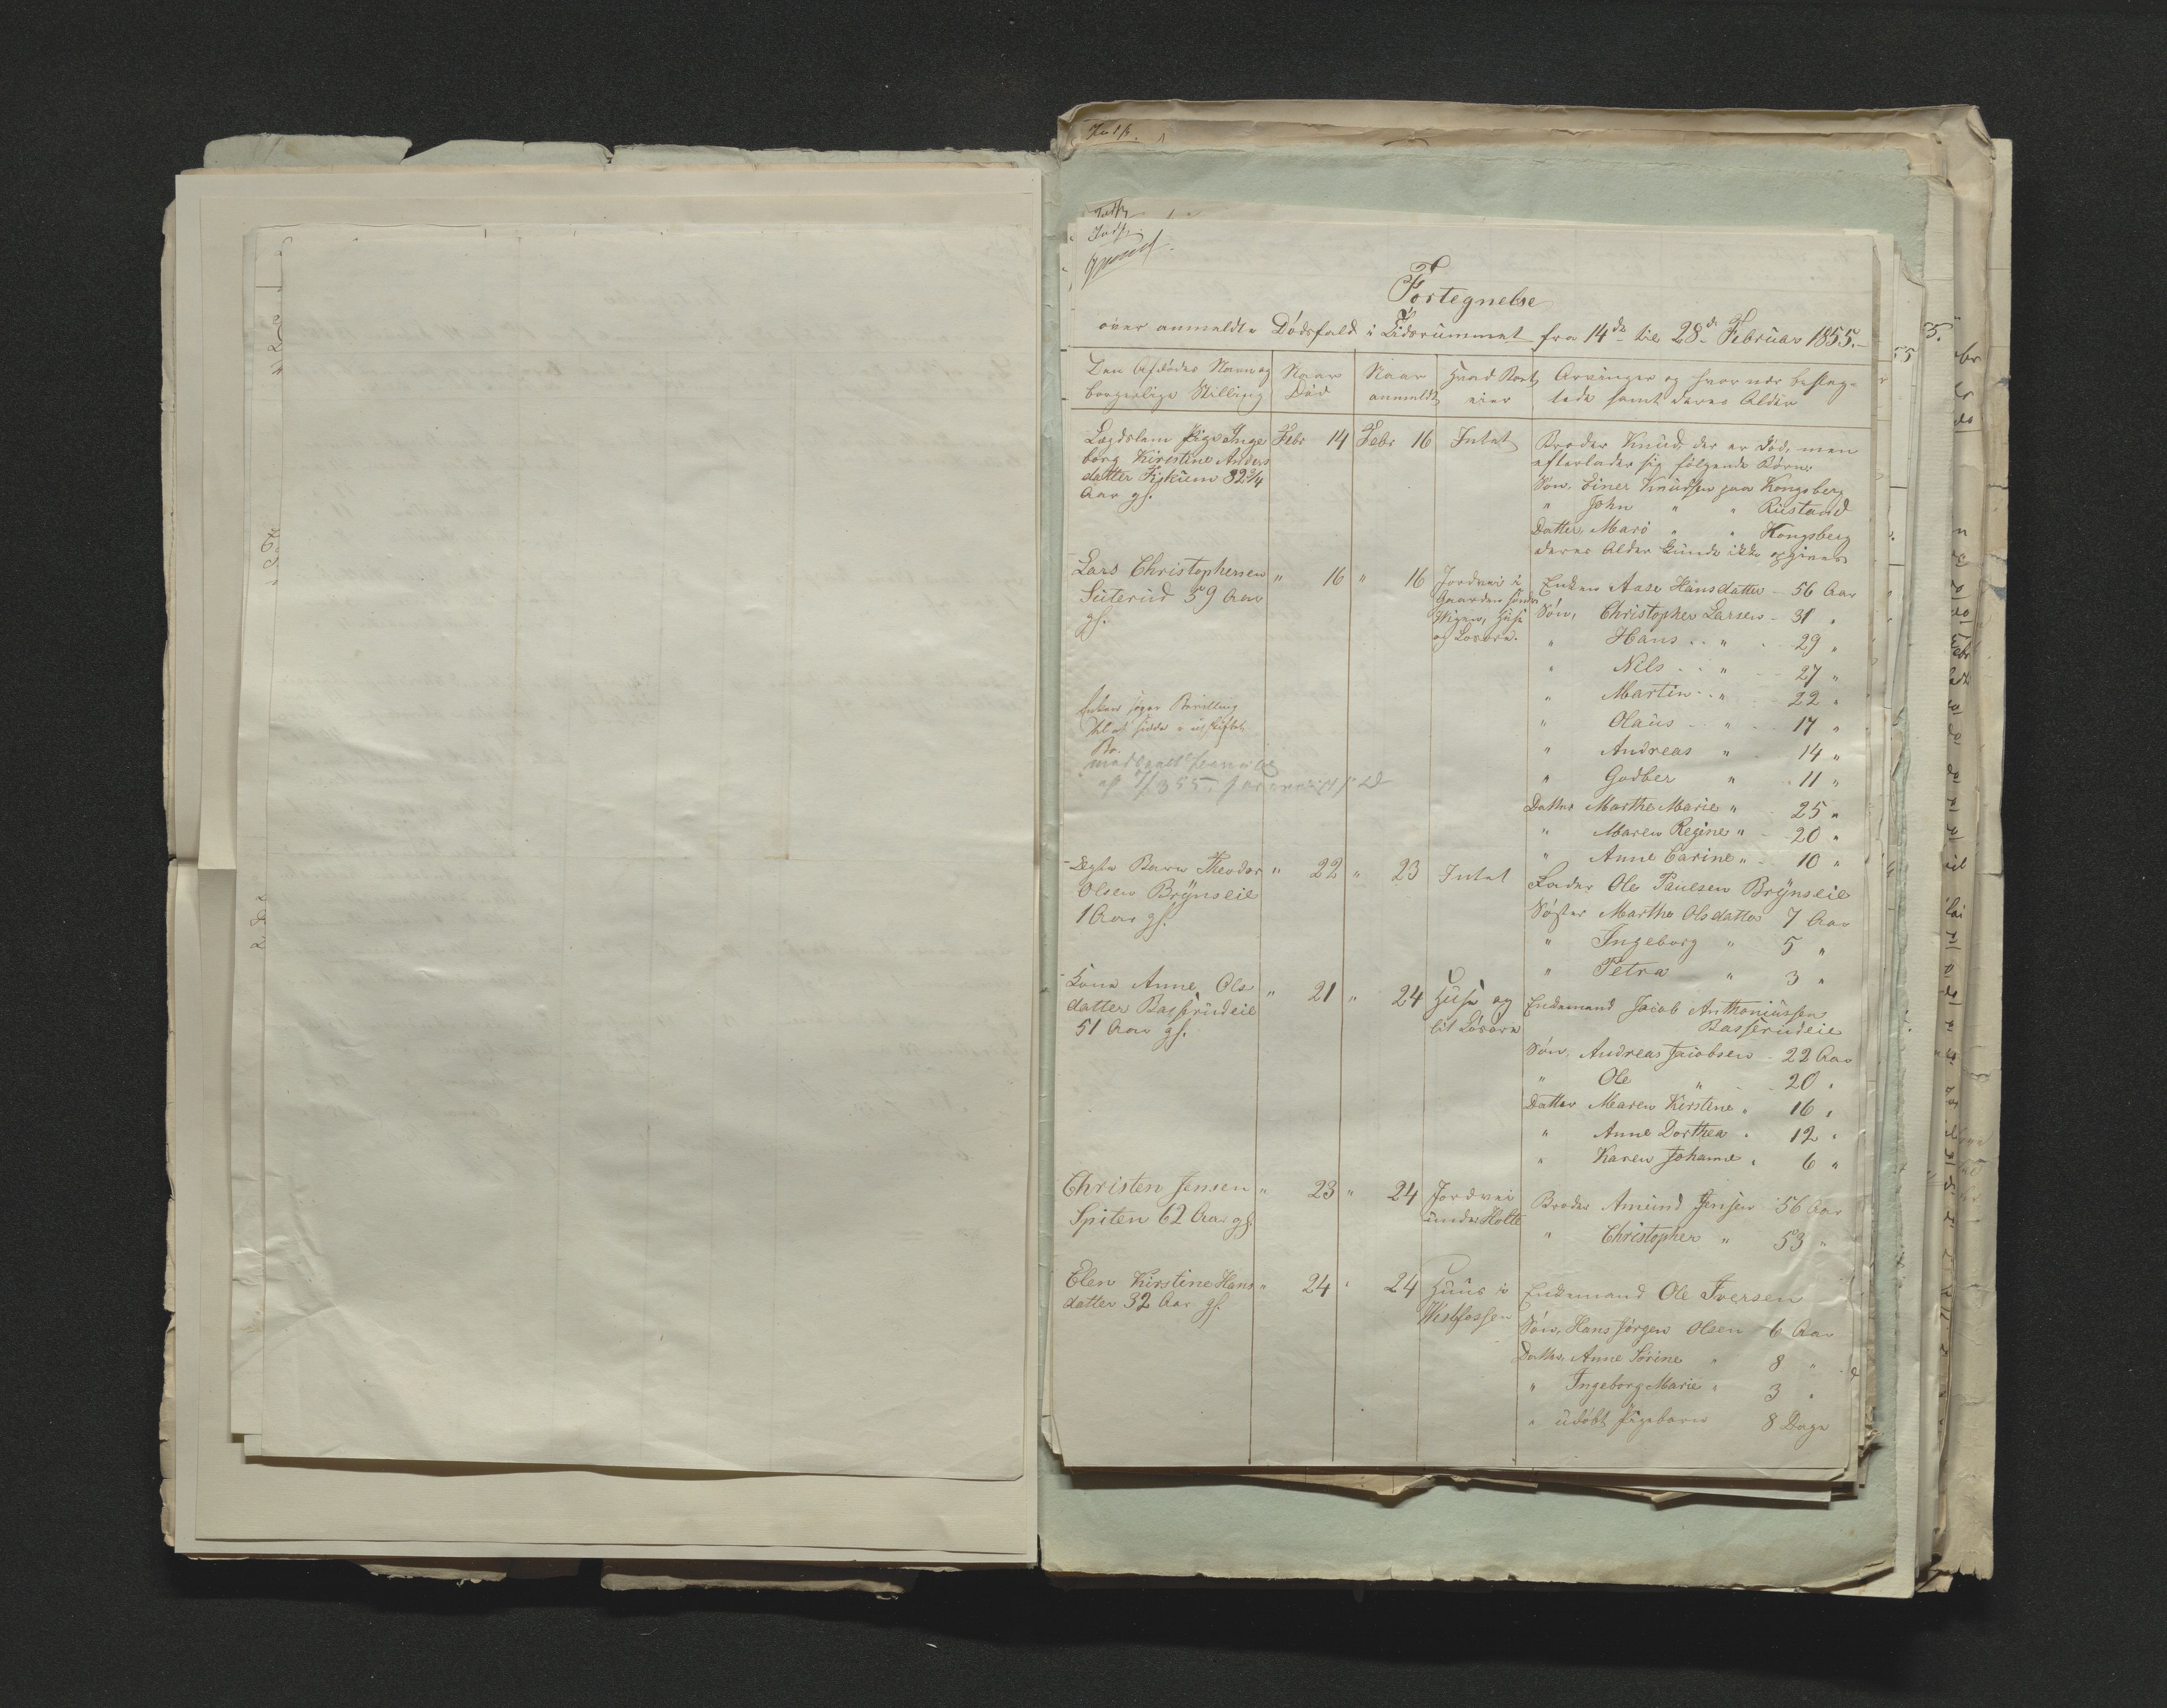 Fortegnelse
over anmeldte Dödsfald i Tidsrummet fra 14de til 28de Februar 1855.
Den Afdödes Navn og borgerlige Stilling
Naar Död
Naar anmeldt
Hvad Boet eier
Arvinger og hvor nær beslægtede samt deres Alder
Lægdslem Pige Inge
borg Kirstine Anders
datter Fiskum 82 3/4
Aar gl.
Febr 14 Febr 16 Intet
Broder Knud, der er död, men
efterlader sig fölgende Börn:
Sön, Einer Knudsen paa Kongsberg
" John " " Rustand
Datter, Mari " " Kongsberg
deres Alder kunde ikke opgives
Lars Christophersen
Suterud 59 Aar
gl.
" 16 " 16
Jordvei i
Gaarden
Wegu, Huse
og Lösöre.
Enken Aase Hansdatter - 56 Aar
Sön, Christopher Larsen - 31 "
" Hans " 29 "
" Nils " 27 "
" Martin " 22 "
" Olaus " 17 "
" Andreas " 14 "
" Godber " 11 "
Datter Marthe Marie " 25 "
" Maren Regine " 20 "
" Anne Carine " 10 "
Enken söger Bevilling
til at sidde i uskiftet
Bo.
Barn Theodor
Olsen Brÿnseie
1 Aar gl.
" 22 " 23 Intet
Fader Ole Paulsen Brÿnseie
Söster Marthe Olsdatter 7 Aar
" Ingeborg " 5 "
" Petra " 3 "
Kone Anne Ols
datter Basserudeie
51 Aar gl.
" 21 " 24
Huse og
lit Lösöre
Enkemand Jacob Anthoniussen
Basserudeie
Sön, Andreas Jacobsen - 22 Aar
" Ole " 20 "
Datter Maren Kirstine " 16 "
" Anne Dorthea " 12 "
" Karen Johanne " 6 "
Christen Jensen
Spiten 62 Aar gl.
" 23 " 24
Jordvei
under Holte
Broder Amund Jensen 56 Aar
" Christopher " 53 "
Elen Kirstine Hans
datter 32 Aar gl.
" 24 " 24
Huus i
Westfossen
Enkemand Ole Iversen
Sön, Hans Jörgen Olsen 6 Aar
Datter, Anne Sörine " 8 "
" Ingeborg Marie " 3 "
" udöbt Pigebarn 8 Dage